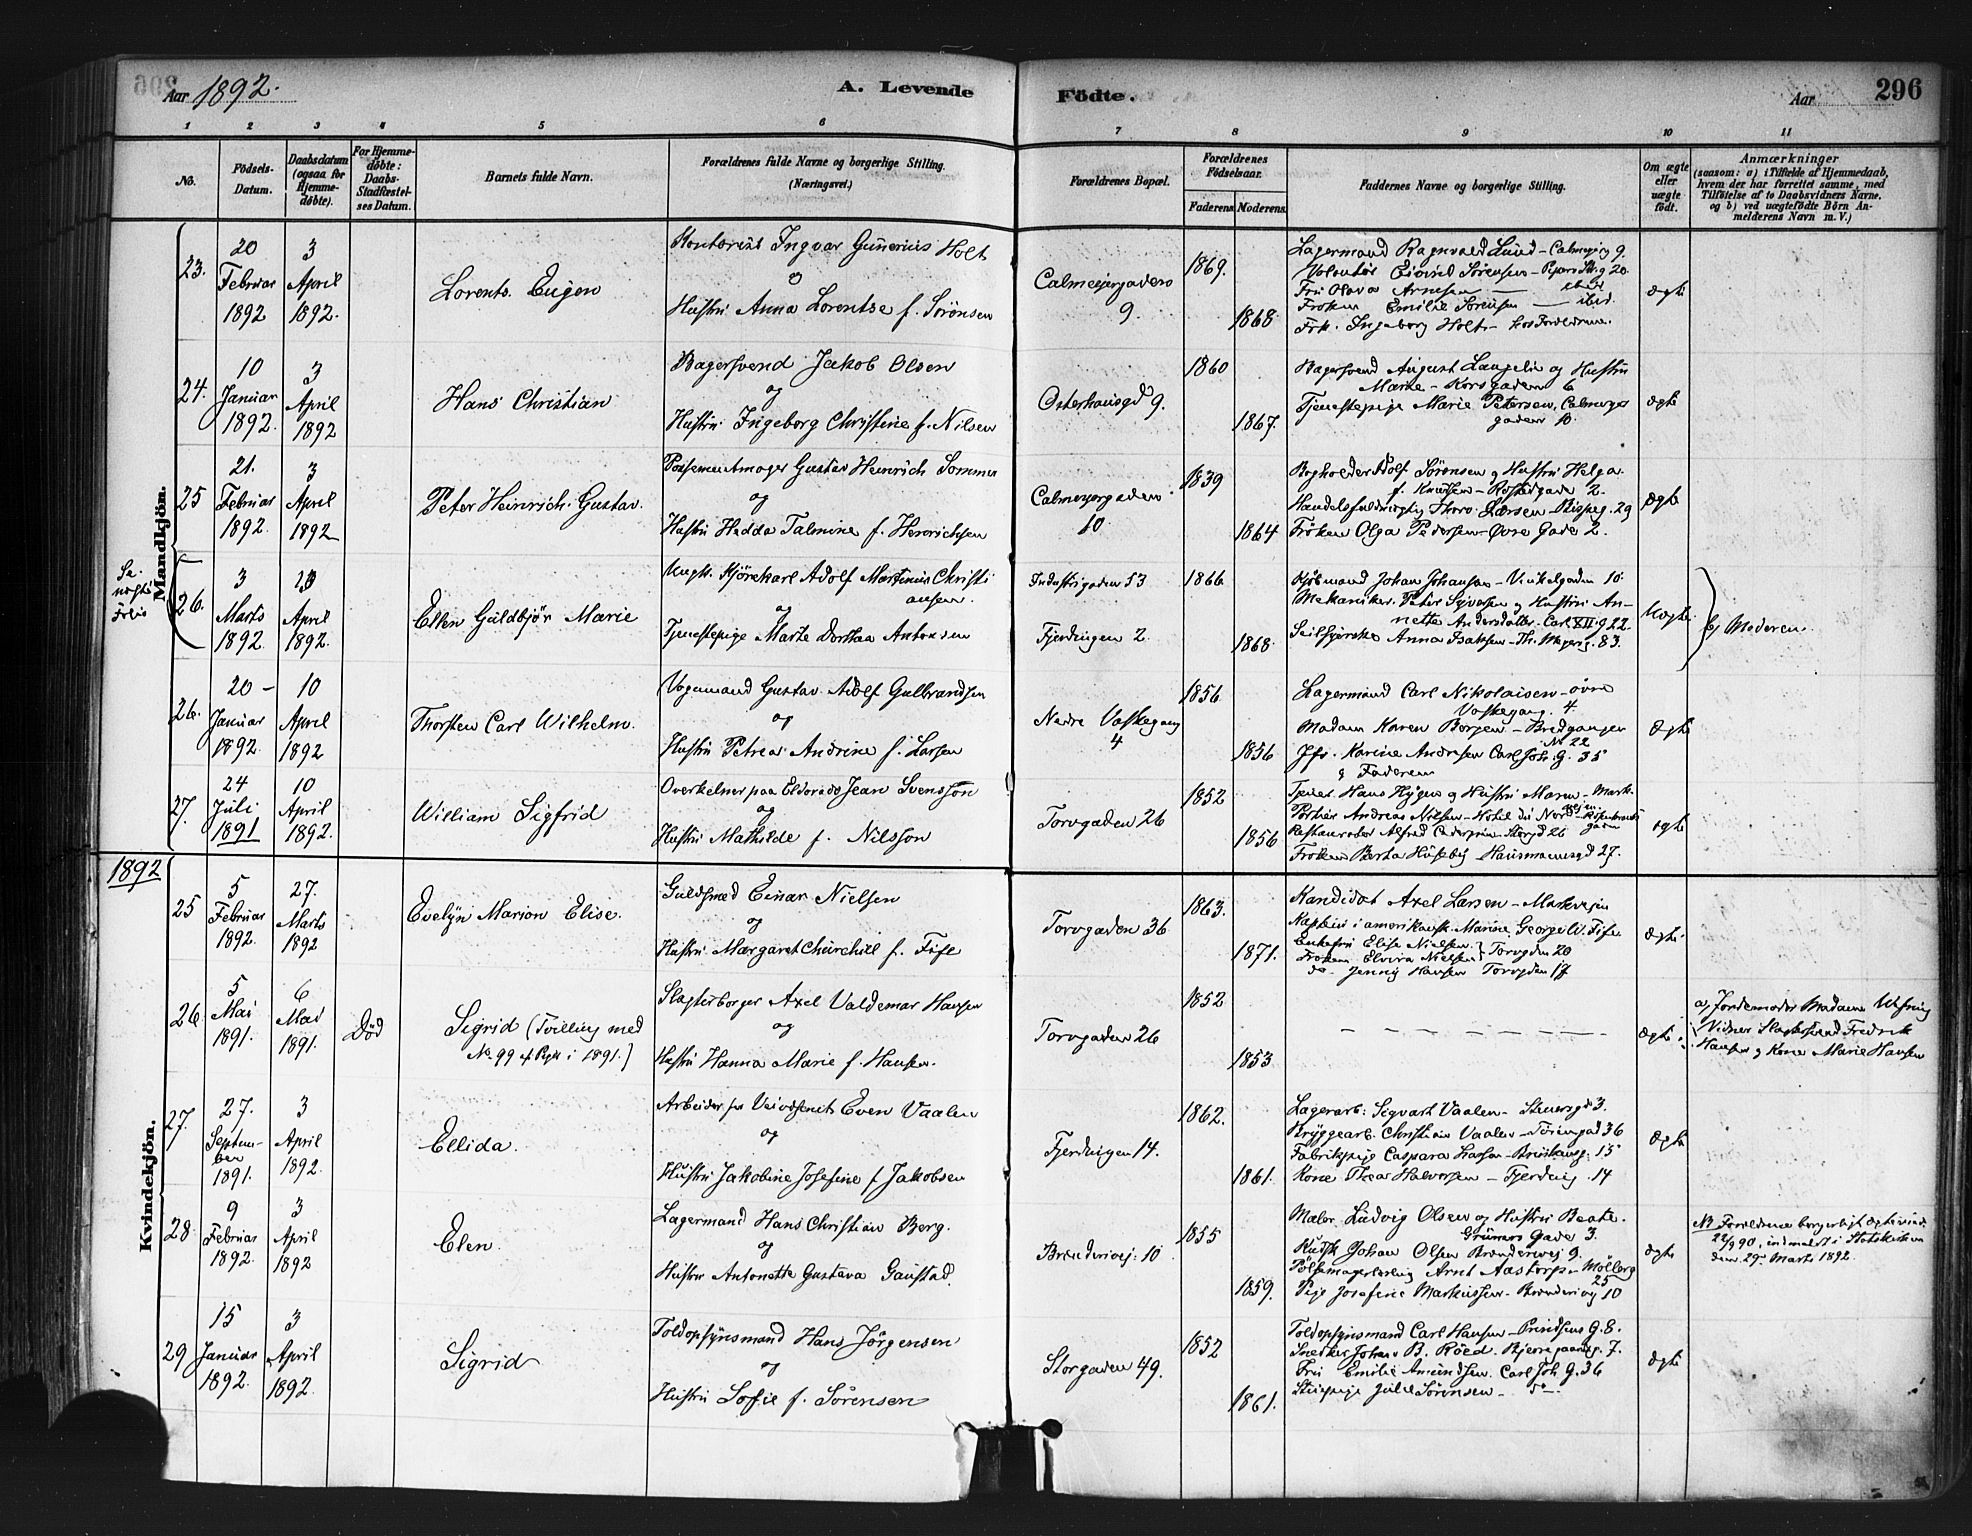 Aar 1892.
A. Levende
Födte.
Aar
296
1 2 3 4 5 6 7 8 9 10 11
No.
Födsels-Datum.
Daabsdatum (ogsaa for Hjemmedøbte).
For Hjemmedøbte: Daabs-Stadfæstelses Datum.
Barnets fulde Navn.
Forældrenes fulde Navne og borgerlige Stilling.
(Næringsvei.)
Forældrenes Bopæl.
Forældrenes Födselsaar.
Faderens Moderens
Faddernes Navne og borgerlige Stilling.
Om ægte eller uægte födt.
Anmærkninger
(saasom: a) i Tilfælde af Hjemmedaab, hvem der har forrettet samme, med Tilföielse af to Daabsvidners Navne, og b) ved uægtefödte Börn Anmelderens Navn m. V.)
Mandkjön.
23.
20 Februar 1892
3 April 1892.
Lorents Eugen
Kontorist Ingvar Gunerius Holt
og
Hustru Anna Lorentse f. Sörensen
Calmeyergaden 9.
1869.
1868.
Lagermand Ragnvald Lund - Calmeyerg 9.
Volontör Eivind Sörensen
Fru Olava Arnesen
Fröken Emilie Sörensen - ibid.
Frk. Ingeborg Holt - hos Forældrene.
ægte
24.
10 Januar 1892.
3 April 1892
Hans Christian
Bagersvend Jakob Olsen
og
Hustru Ingeborg Christine f. Nilsen
Osterhausgd 9.
1860
1867.
Bagersvend August Langelie og Hustru
Marte - Korsgaden 6
Tjenestepige Marie Petersen, Calmeyer
gaden 10.
ægte
25
21. Februar 1892.
3 April 1892
Peter Heinrich Gustav.
Possementmager Gustav Heinrich Sommer
og
Hustru Hedda Talmine f. Henrichsen
Calmeyergaden 10.
1839
1864
Bogholder Adolf Sörensen og Hustru Helga
f. Knudsen - Rostedgade 2.
Handelsfuldmægtig Thoro Larsen - Bispeg. 29
Fröken Olga Pedersen - Övre Gade 2.
ægte
26.
3 Marts 1892
April 1892.
Ellen Guldbjör Marie
Ungk. Kjörekarl Adolf Martinius Christi
ansen.
og
Tjenestepige Marte Dorthea Antonsen
Industrigaden 53
Fjerdingen 2.
1866
1868.
Kjöbmand Johan Johansen - Vinkelgaden 10.
Mekaniker Peter Syversen og Hustru An-
nette Andersdatter - Carl XII g 22.
Anna Isaksen - Th. Meyersg. 83.
Uægte.
b) Moderen
26.
20 - Januar 1892.
10 April 1892
Thorsten Carl Wilhelm.
Vognmand Gustav Adolf Gulbrandsen
og
Hustru Petrea Andrine f. Larsen
Nedre Vaskegang 4
1856.
1856
Lagermand Carl Nikolaisen - övre
Vaskegang. 4
Madam Karen Borgen - Bredgangen
No 22
Jfr. Karine Andresen Carl Joh. G. 35
& Faderen
ægte
27.
24 Juli 1891
10 April 1892.
William Sigfrid
Overkelner paa Eldorado Jean Svensson
og
Hustru Mathilde f. Nilsson
Torvgaden 26
1852
1856
Hans Hygen og Hustru Maren - Mark-
veien.
Portier Andreas Nilsen - Hotel du Nord
Restauratör Alfred
Fröken Berta Huseby - Hausmannsgd 27.
ægte
1892
Kvindekjön.
25
5 Februar 1892.
27. Marts 1892
Evelyn Marion Elise.
Guldsmed Einar Nielsen
og
Hustru Margaret Churchill f. Fife
Torvgaden 36
1863.
1871.
Kandidat Axel Larsen - Markveien
Kaptein i amerikansk Marine George W. Fife
Enkefru Elise Nielsen
Fröken Elvira Nielsen } Torvgden 20
do - Jenny Hansen Torvgden 17
ægte.
26.
5 Mai 1891.
6 Mai 1891.
Död
Sigrid (Tvilling med
No 99 af Pigk i 1891.)
Slagterborger Axel Valdemar Hansen
og
Hustru Hanna Marie f. Hansen.
Torvgaden 26
1852
1853
- - - - - - - -
ægte
a) Jordemoder Madame
Vidner Slagtersvend Fredrik
Hansen og Kone Marie Hansen
27.
27. September 1891.
3 April 1892.
Ellida.
Arbeider ved Veivæsenet Even Vaalen
og
Hustru Jakobine Josefine f Jakobsen
Fjerdingen 14.
1862.
1861.
Lagerarb: Sigvart Vaalen - Steensgd 3.
Bryggearb. Christian Vaalen - Torvengad 36
Fabrikspige Caspara Larsen - 15
Kone Thea Halvorsen - Fjerding. 14
ægte
28.
9 Februar 1892.
3 April 1892
Elen.
Lagermand Hans Christian Berg.
og
Hustru Antonette Gustava Gaustad.
Brenderivej. 10
1855
1859.
Maler Ludvig Olsen og Hustru Beate.
Grüners Gade 3.
Kudsk Johan Olsen Brenderivej 9.
Pölsemagerlærling Arnt Aastorp - Möllerg
25
Pige Josefine Markussen - Brenderivej 10
ægte
NB Forældrene borgerligt ægteviede
22/9 90, indmeldt i Statskirken
den 29. Marts 1892.
29
15 Januar 1892.
3 April 1892.
Sigrid
Toldopsynsmand Hans Jörgensen
og
Hustru Sofie f. Sörensen
Storgaden 49.
1852
1861.
Toldopsynsmand Carl Hansen - Prindsens G. 8.
Snedker Johan B. Röed. 7.
Fru Emilie Amundsen. Carl Joh G. 36
Julie Sörensen - do -
ægte